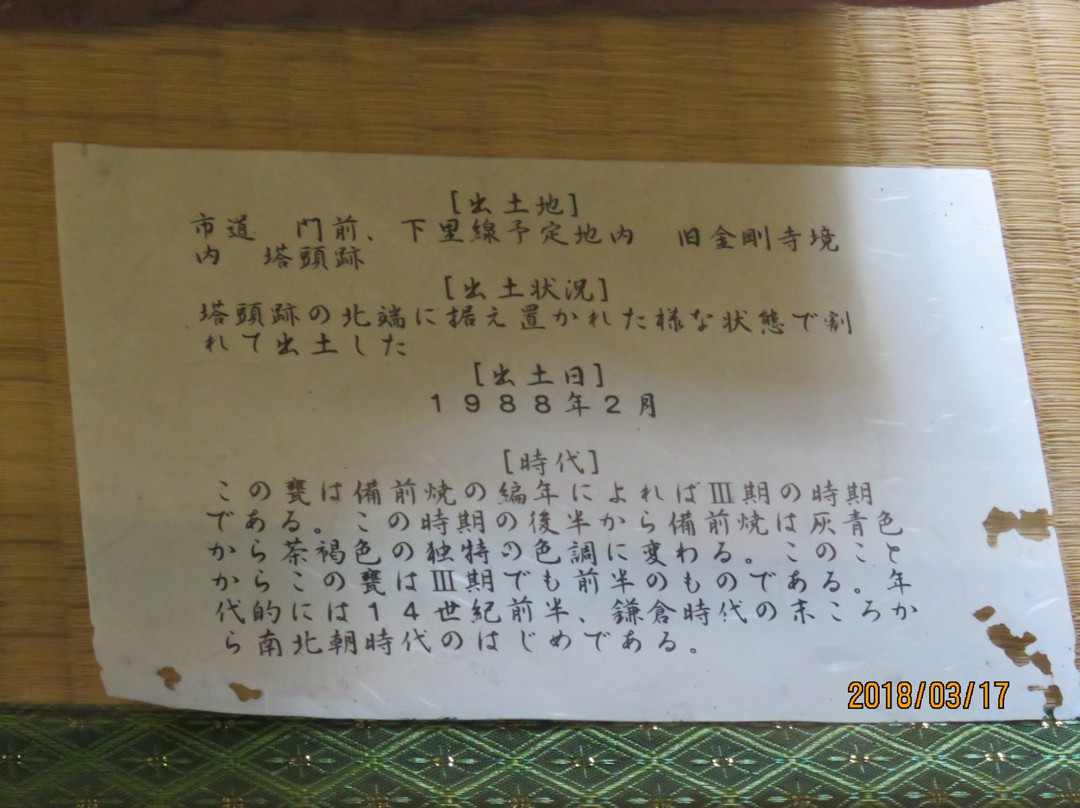 [出土地]
市道　門前、下里線予定地内　旧金剛寺境
内　塔頭跡
[出土状況]
塔頭跡の北端に据え置かれた様な状態で割
れて出土した
[出土日]
1988年2月
[時代]
この甕は備前焼の編年によればⅢ期の時期
である。この時期の後半から備前焼は灰青色
から茶褐色の独特の色調に変わる。このこと
からこの甕はⅢ期でも前半のものである。年
代的には14世紀前半、鎌倉時代の末ころか
ら南北朝時代のはじめである。
2018/03/17